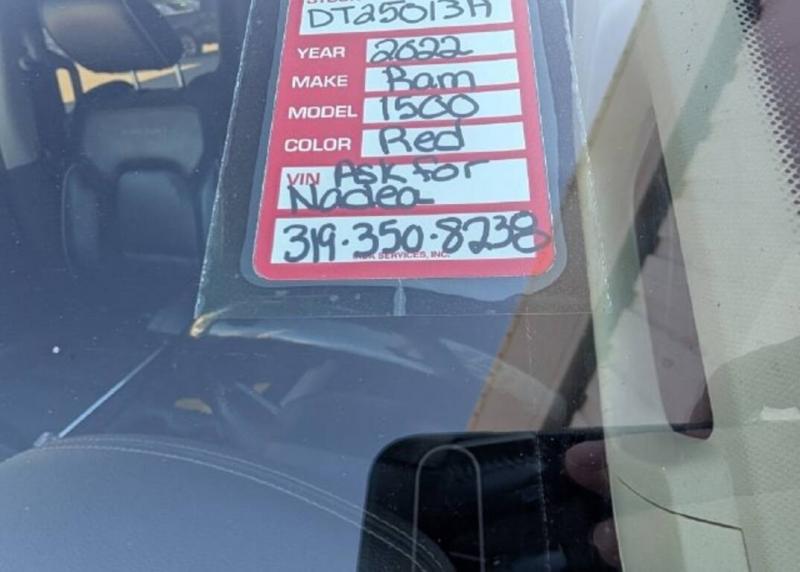 DT25013A
YEAR 2022
MAKE Ram
MODEL 1500
COLOR Red
VIN Ask for
Nadea
319.350.8238
SERVICES, INC.